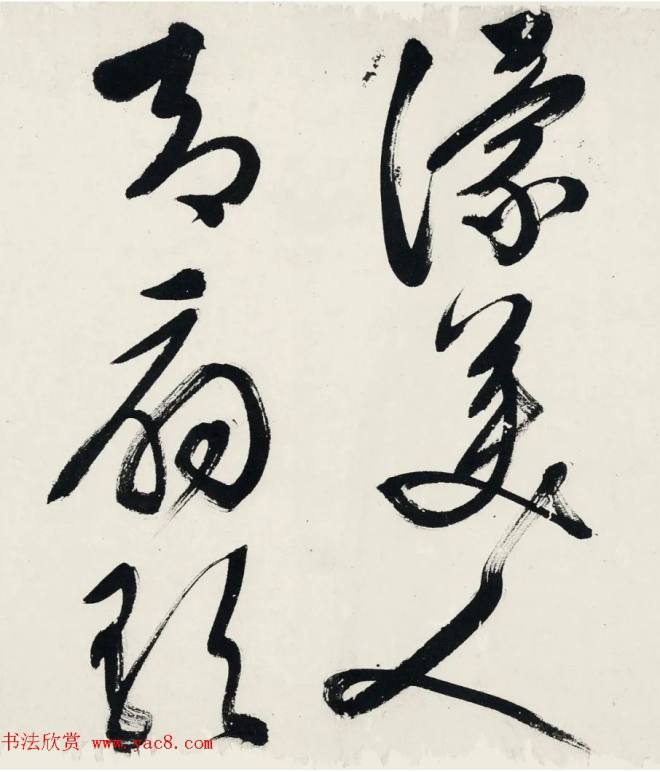 濛美人
却扇
书法欣赏 www.yac8.com